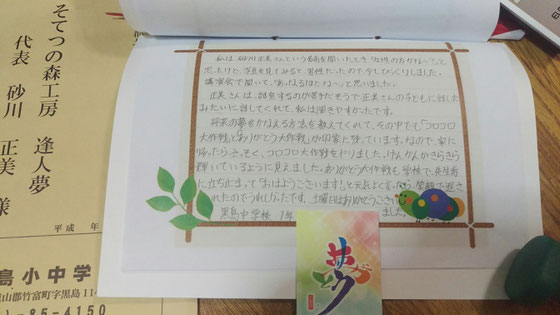 そてつの森工房 逢人夢
代表 砂川 正美 様
平成 年
島小中学
山郡竹富町字黒島11
-85-4150
私は、砂川正美さんという名前を聞いたとき「女性の方かなぁ〜。」と
思ったけど、写真を見てみると、男性だったので、少しびっくりしました。
講演会で聞いて、「あっなるほどねー」と思いました。
正美さんは、話をするのが好きだそうで正美さんの子どもに話した
みたいに話してくれて、私は聞きやすかったです。
将来の夢をかなえる方法を教えてくれて、その中でも「コロコロ
大作戦」と「ありがとう大作戦」が印象に残っています。なので、家に
帰ったらさっそく、コロコロ大作戦をやりました。きらきら
輝いているように見えました。ありがとう大作戦も学校で、先生方
に立ち止まって「おはようございます!」と元気よく言ったら、笑顔で返さ
れたのでうれしかったです。土曜日はありがとうござい
ました。
黒島中学校 1年